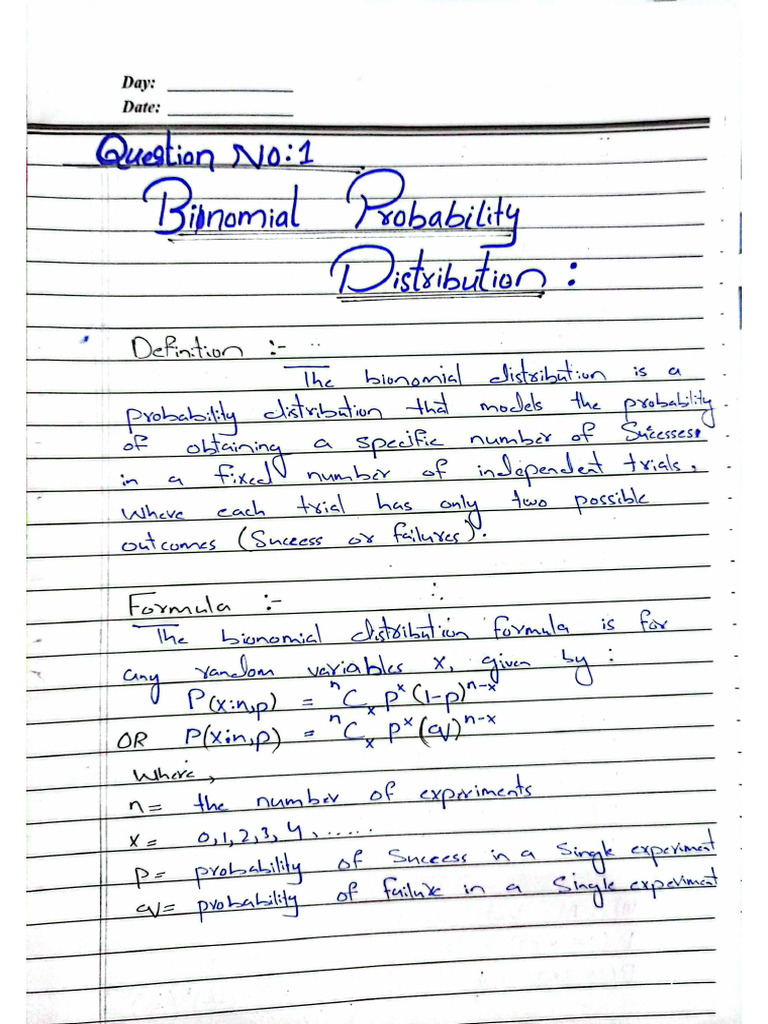 Day:
Date:
Question No:1
Bionomial Probability
Distribution :
Definition :-
The bionomial distribution is a
probability distribution that models the probability
of obtaining a specific number of Sucesses.
in a fixed number of independent trials,
where each trial has only two possible
outcomes (Success or failures).
Formula :-
The bionomial distribution formula is for
any random variables x, given by :
P(x:n,p) = ⁿCₓ pˣ (1-p)ⁿ⁻ˣ
OR P(x:n,p) = ⁿCₓ pˣ (q)ⁿ⁻ˣ
Where,
n = the number of experiments
x = 0,1,2,3,4,......
p = probability of Success in a Single experiment
q = probability of failure in a Single experiment